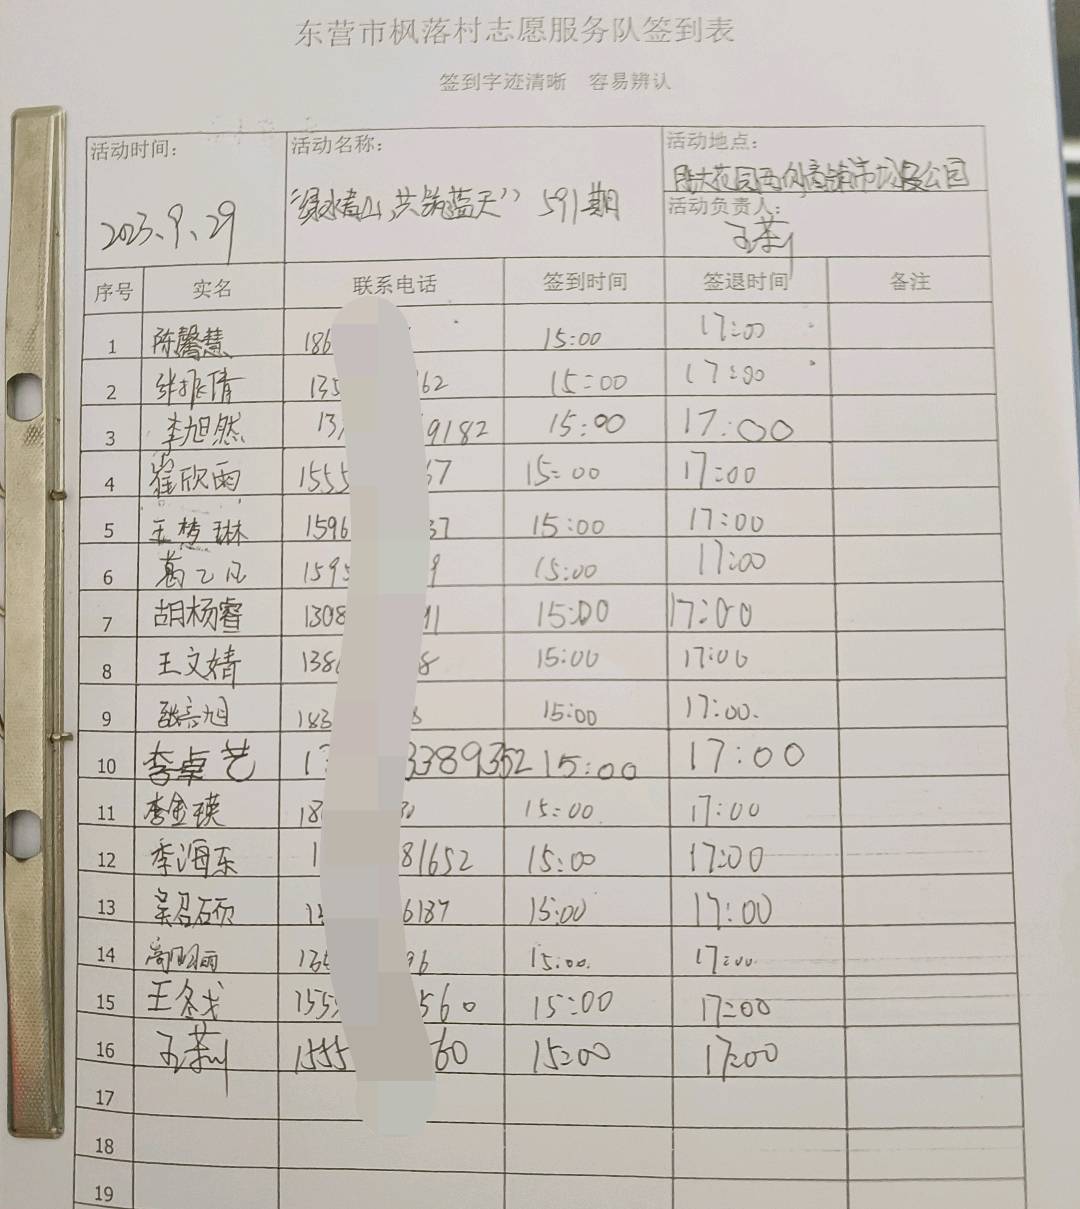 东营市枫落村志愿服务队签到表
签到字迹清晰 容易辨认
活动时间: 活动名称: 活动地点:
2023.9.29 "绿水青山,共筑蓝天" 591期 公园
活动负责人:
王莉
序号 实名 联系电话 签到时间 签退时间 备注
1 陈馨慧 186 15:00 17:00
2 张 倩 135 62 15:00 17:00
3 李旭然 13 9182 15:00 17:00
4 崔欣雨 1555 67 15:00 17:00
5 王梦琳 1596 37 15:00 17:00
6 葛乙凡 1595 9 15:00 17:00
7 胡杨睿 1308 91 15:00 17:00
8 王文婧 138 8 15:00 17:00
9 旭 183 8 15:00 17:00.
10 李卓艺 1 3389352 15:00 17:00
11 李金瑛 18 30 15:00 17:00
12 李海东 1 81652 15:00 17:00
13 吴召硕 1 6187 15:00 17:00
14 高 丽 135 96 15:00. 17:00
15 王冬戈 155 560 15:00 17:00
16 王莉 1555 60 15:00 17:00
17
18
19